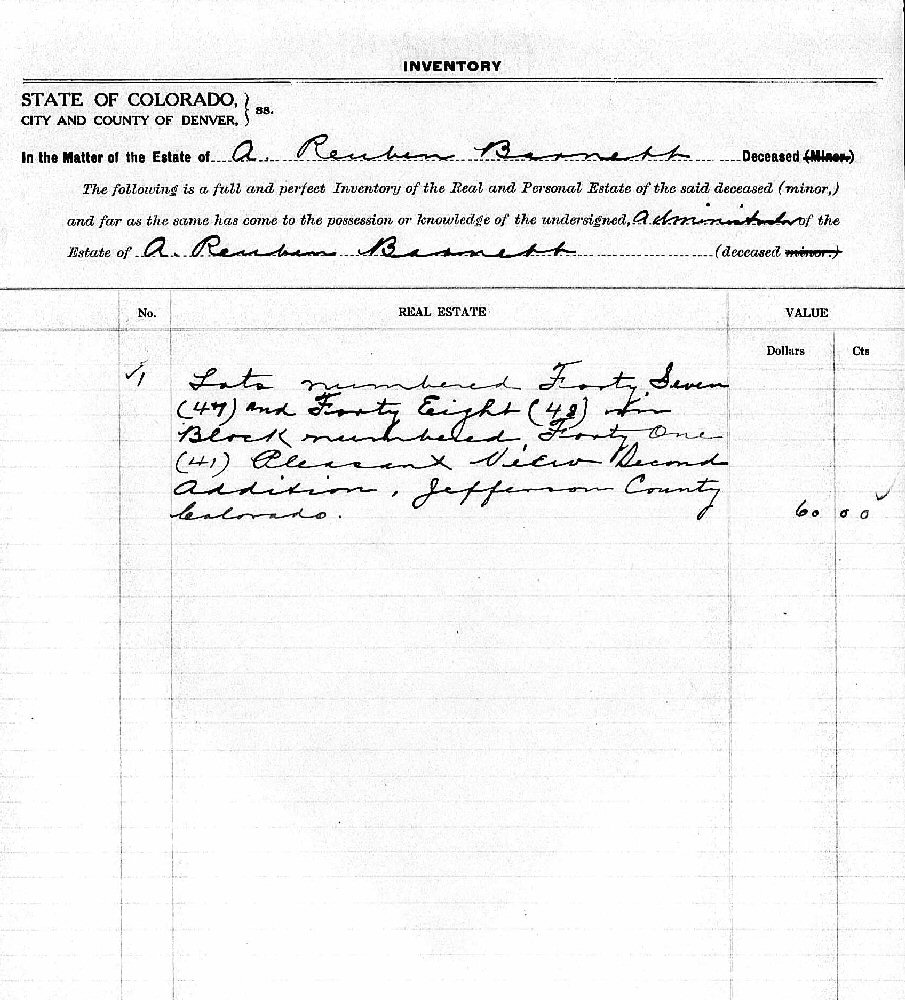 INVENTORY
STATE OF COLORADO, } ss.
CITY AND COUNTY OF DENVER,
In the Matter of the Estate of A. Reuben Barnett Deceased (Minor.)
The following is a full and perfect Inventory of the Real and Personal Estate of the said deceased (minor,)
and far as the same has come to the possession or knowledge of the undersigned, Administrator of the
Estate of A. Reuben Barnett (deceased minor.)
No. REAL ESTATE VALUE
Dollars Cts
✓1 Lots numbered Forty Seven
(47) and Forty Eight (48) in
Block numbered Forty One
(41) Pleasant View Second
Addition, Jefferson County
Colorado. 60 00